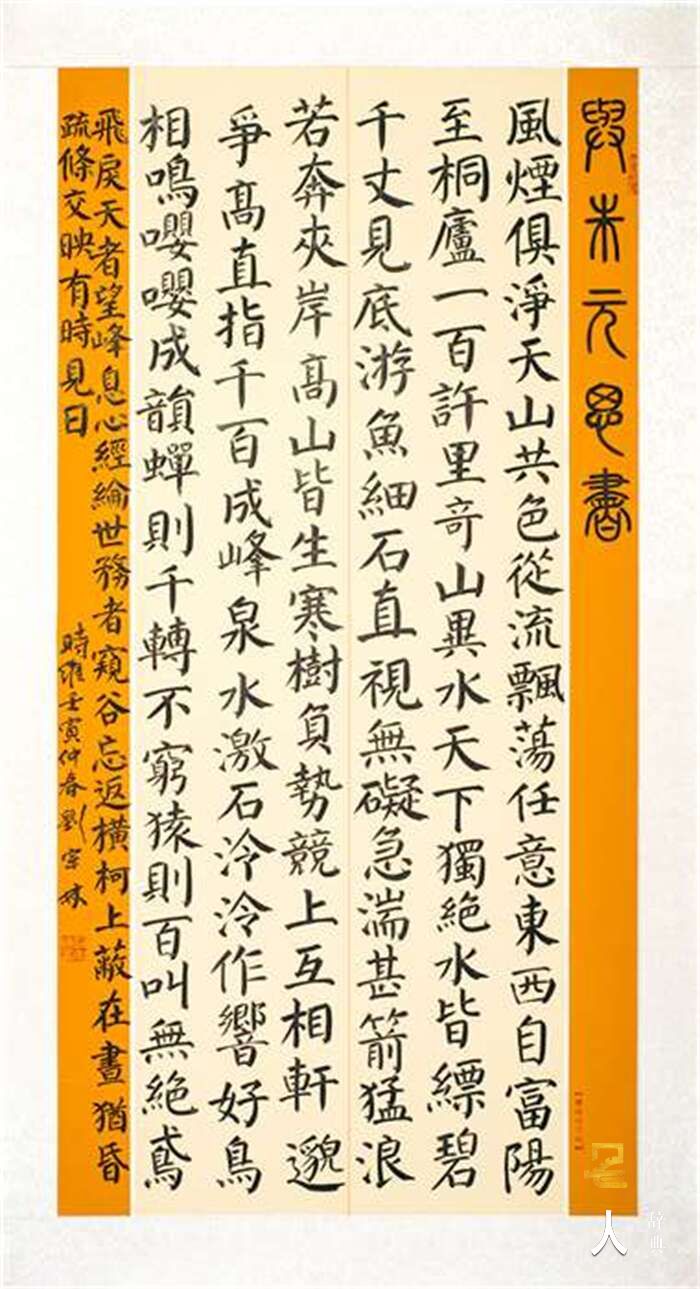 與朱元思書
風煙俱淨天山共色從流飄蕩任意東西自富陽
至桐廬一百許里奇山異水天下獨絕水皆縹碧
千丈見底游魚細石直視無礙急湍甚箭猛浪
若奔夾岸髙山皆生寒樹負勢競上互相軒邈
爭髙直指千百成峰泉水激石泠泠作響好鳥
相鳴嚶嚶成韻蟬則千轉不窮猿則百叫無絕鳶
飛戾天者望峰息心經綸世務者窺谷忘返橫柯上蔽在晝猶昏
疏條交映有時見日
時維壬寅仲春劉宗
人
辞典